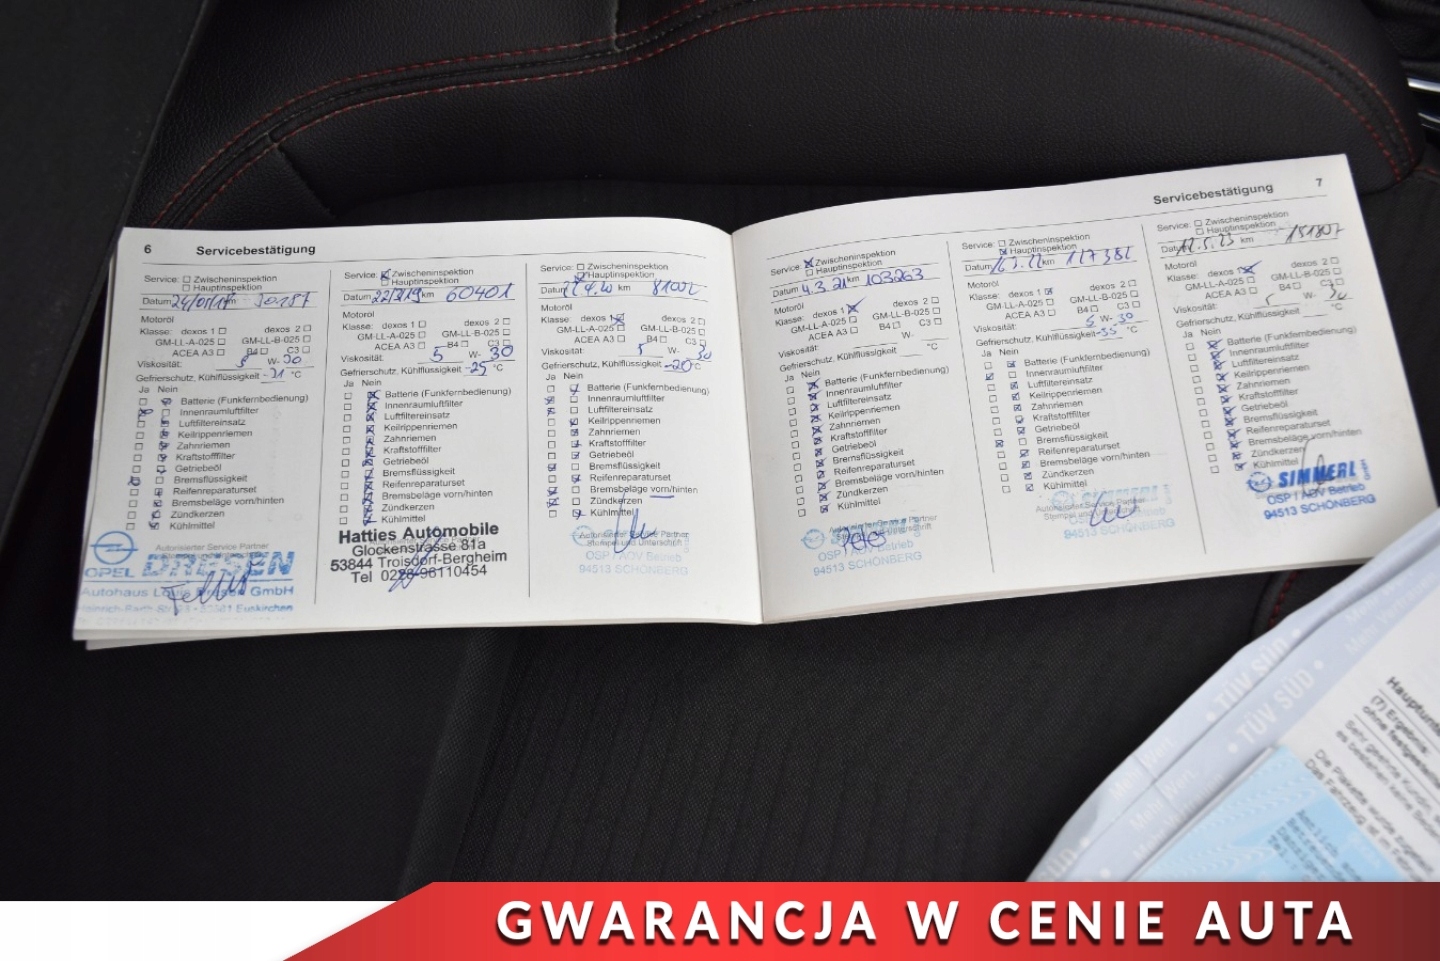 6 Servicebestätigung
Service: Zwischeninspektion
Hauptinspektion
Datum km
Motoröl
Klasse: dexos 1 dexos 2
GM-LL-A-025 GM-LL-B-025
ACEA A3 B4 C3
Viskosität: 5 W- 30
Gefrierschutz, Kühlflüssigkeit -21 °C
Ja Nein
Batterie (Funkfernbedienung)
Innenraumluftfilter
Luftfiltereinsatz
Keilrippenriemen
Zahnriemen
Kraftstofffilter
Getriebeöl
Bremsflüssigkeit
Reifenreparaturset
Bremsbeläge vorn/hinten
Zündkerzen
Kühlmittel
Autorisierter Service Partner
OPEL DRIESEN
Autohaus Louis Dresen GmbH
53881 Euskirchen
Service: Zwischeninspektion
Hauptinspektion
Datum 22/3/19 km 60401
Motoröl
Klasse: dexos 1 dexos 2
GM-LL-A-025 GM-LL-B-025
ACEA A3 B4 C3
Viskosität: 5 W- 30
Gefrierschutz, Kühlflüssigkeit -25 °C
Ja Nein
Batterie (Funkfernbedienung)
Innenraumluftfilter
Luftfiltereinsatz
Keilrippenriemen
Zahnriemen
Kraftstofffilter
Getriebeöl
Bremsflüssigkeit
Reifenreparaturset
Bremsbeläge vorn/hinten
Zündkerzen
Kühlmittel
Hatties Automobile
Glockenstrasse 81a
53844 Troisdorf-Bergheim
Tel 0228-96110454
Service: Zwischeninspektion
Hauptinspektion
Datum km
Motoröl
Klasse: dexos 1 dexos 2
GM-LL-A-025 GM-LL-B-025
ACEA A3 B4 C3
Viskosität: 5 W- 30
Gefrierschutz, Kühlflüssigkeit -20 °C
Ja Nein
Batterie (Funkfernbedienung)
Innenraumluftfilter
Luftfiltereinsatz
Keilrippenriemen
Zahnriemen
Kraftstofffilter
Getriebeöl
Bremsflüssigkeit
Reifenreparaturset
Bremsbeläge vorn/hinten
Zündkerzen
Kühlmittel
Autorisierter Service Partner
Stempel und Unterschrift
OSP / ADV Betrieb
94513 SCHÖNBERG
Servicebestätigung 7
Service: Zwischeninspektion
Hauptinspektion
Datum 4.3.21 km 103263
Motoröl
Klasse: dexos 1 dexos 2
GM-LL-A-025 GM-LL-B-025
ACEA A3 B4 C3
Viskosität: W-
Gefrierschutz, Kühlflüssigkeit °C
Ja Nein
Batterie (Funkfernbedienung)
Innenraumluftfilter
Luftfiltereinsatz
Keilrippenriemen
Zahnriemen
Kraftstofffilter
Getriebeöl
Bremsflüssigkeit
Reifenreparaturset
Bremsbeläge vorn/hinten
Zündkerzen
Kühlmittel
Autorisierter Service Partner
OSP / ADV Betrieb
94513 SCHÖNBERG
Service: Zwischeninspektion
Hauptinspektion
Datum km
Motoröl
Klasse: dexos 1 dexos 2
GM-LL-A-025 GM-LL-B-025
ACEA A3 B4 C3
Viskosität: 5 W- 30
Gefrierschutz, Kühlflüssigkeit -35 °C
Ja Nein
Batterie (Funkfernbedienung)
Innenraumluftfilter
Luftfiltereinsatz
Keilrippenriemen
Zahnriemen
Kraftstofffilter
Getriebeöl
Bremsflüssigkeit
Reifenreparaturset
Bremsbeläge vorn/hinten
Zündkerzen
Kühlmittel
Autorisierter Service Partner
Stempel und Unterschrift
SIMMERL
OSP / ADV Betrieb
94513 SCHÖNBERG
Service: Zwischeninspektion
Hauptinspektion
Datum km 151807
Motoröl
Klasse: dexos 1 dexos 2
GM-LL-A-025 GM-LL-B-025
ACEA A3 B4 C3
Viskosität: 5 W- 30
Gefrierschutz, Kühlflüssigkeit °C
Ja Nein
Batterie (Funkfernbedienung)
Innenraumluftfilter
Luftfiltereinsatz
Keilrippenriemen
Zahnriemen
Kraftstofffilter
Getriebeöl
Bremsflüssigkeit
Reifenreparaturset
Bremsbeläge vorn/hinten
Zündkerzen
Kühlmittel
SIMMERL
OSP / ADV Betrieb
94513 SCHÖNBERG
TÜV SÜD
TÜV SÜD
Mehr Wert.
(7) Ergebnis
GWARANCJA W CENIE AUTA